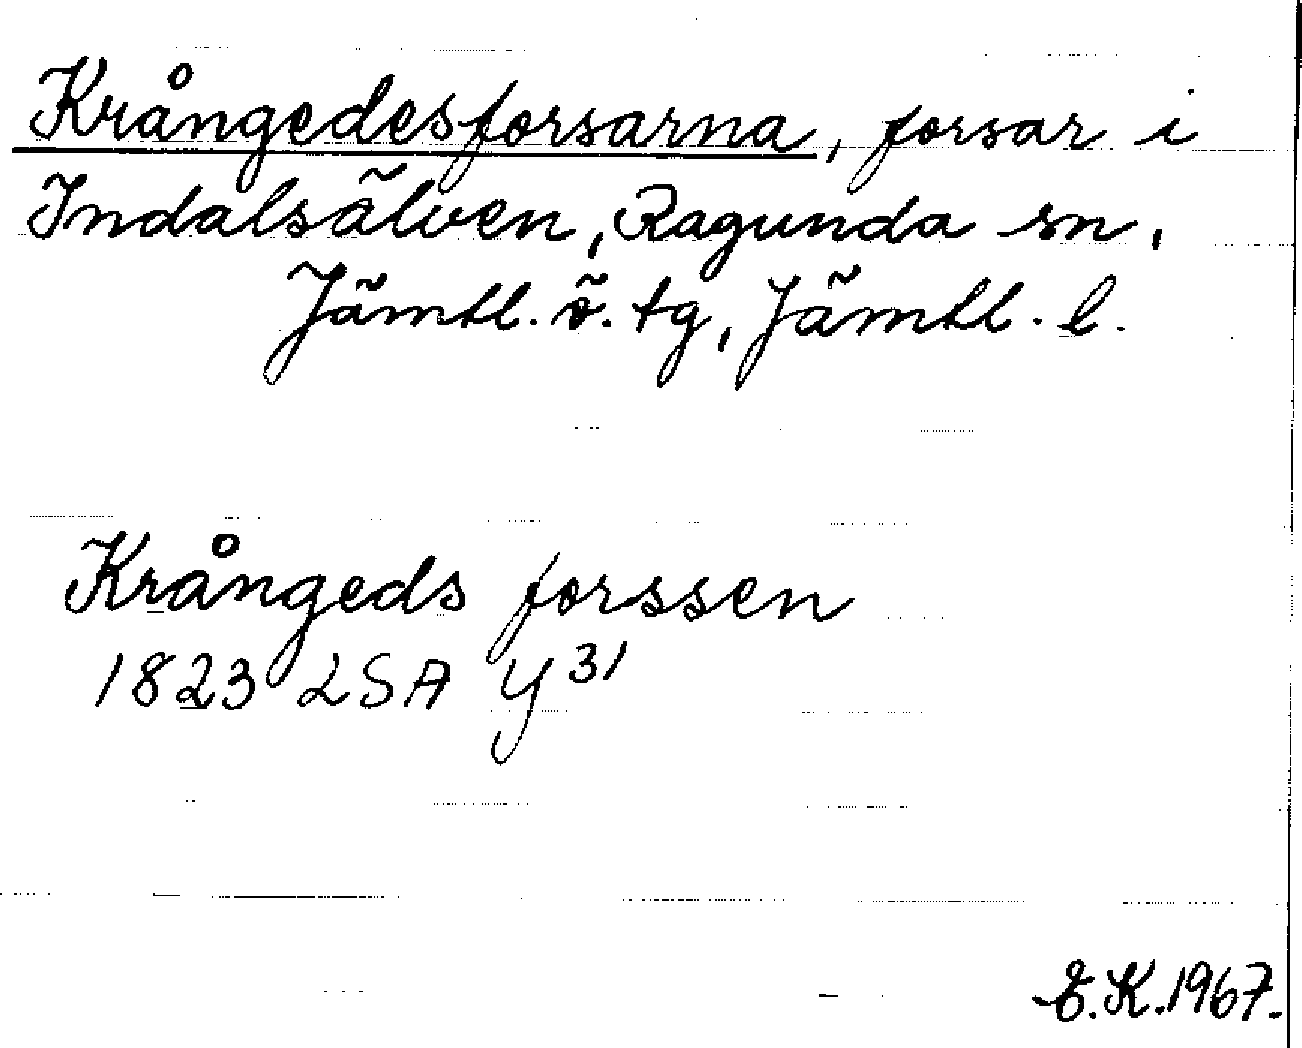 Krångedesforsarna, forsar i
Indalsälven, Ragunda sn,
Jämtl. ö. tg, Jämtl. l.
Krångeds forssen
1823 LSA Y 31
E.K. 1967.